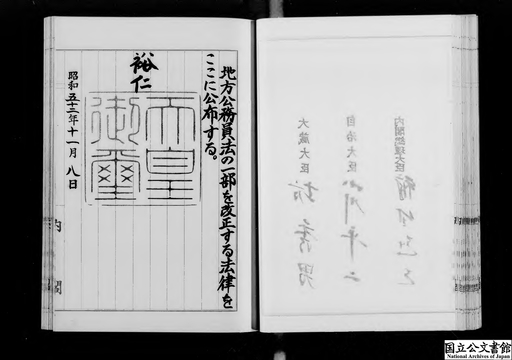 地方公務員法の一部を改正する法律を
ここに公布する。
裕仁
天皇
御璽
昭和五十三年十一月八日
内閣
内閣総理大臣
自治大臣
大蔵大臣
国立公文書館
National Archives of Japan